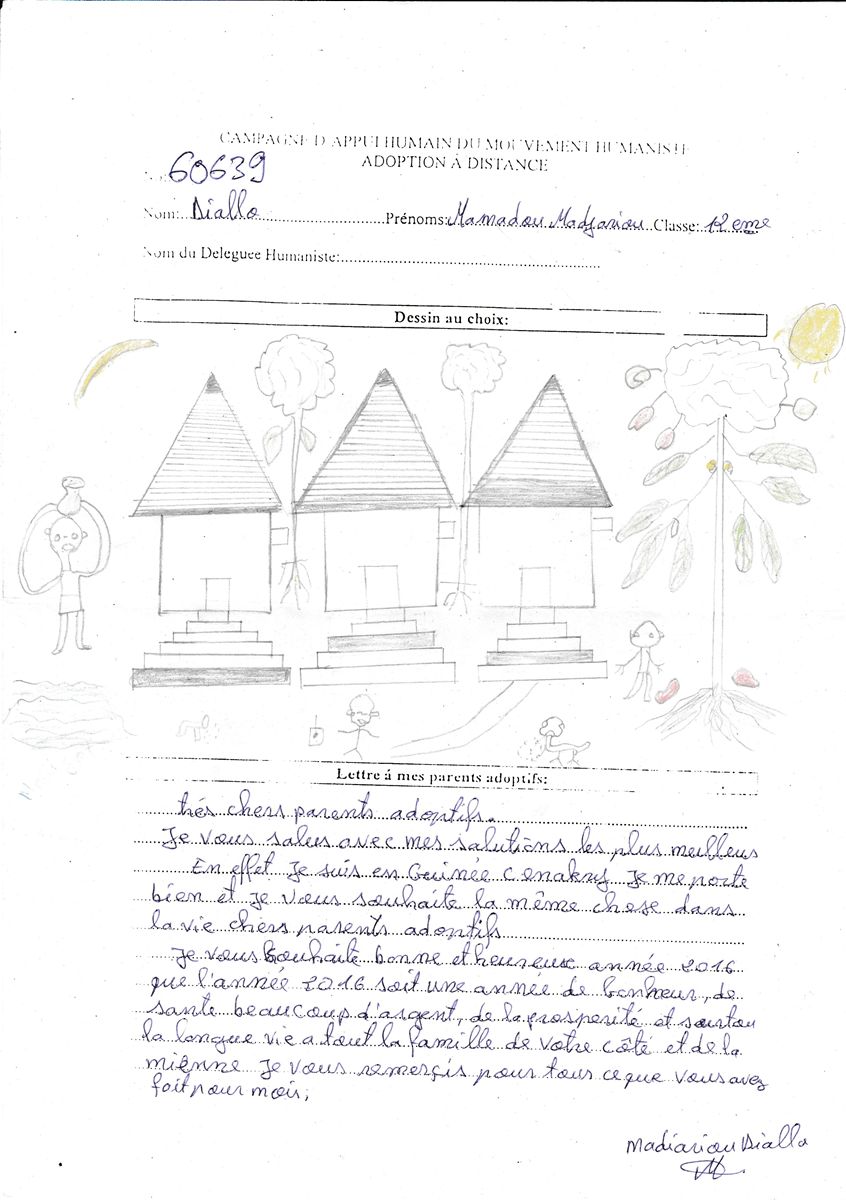 CAMPAGNE D'APPUI HUMAIN DU MOUVEMENT HUMANISTE
ADOPTION À DISTANCE
N°: 60639
Nom: Diallo Prénoms: Mamadou Madjariou Classe: 12eme
Nom du Deleguee Humaniste:
Dessin au choix:
Lettre á mes parents adoptifs:
trés chers parents adoptifs.
Je vous salus avec mes salutions les plus meilleus
En effet Je suis en Guinée Conakry Je me porte
bien et Je vous souhaite la même chose dans
la vie chers parents adoptifs
Je vous souhaite bonne et heureuse année 2016
que l'année 2016 soit une année de bonheur, de
sante beaucoup d'argent, de la prosperité et sourtou
la longue vie a tout la famille de votre côté et de la
miènne Je vous remerçis pour tous ce que vous avez
fait pour mois;
Madiariou Diallo